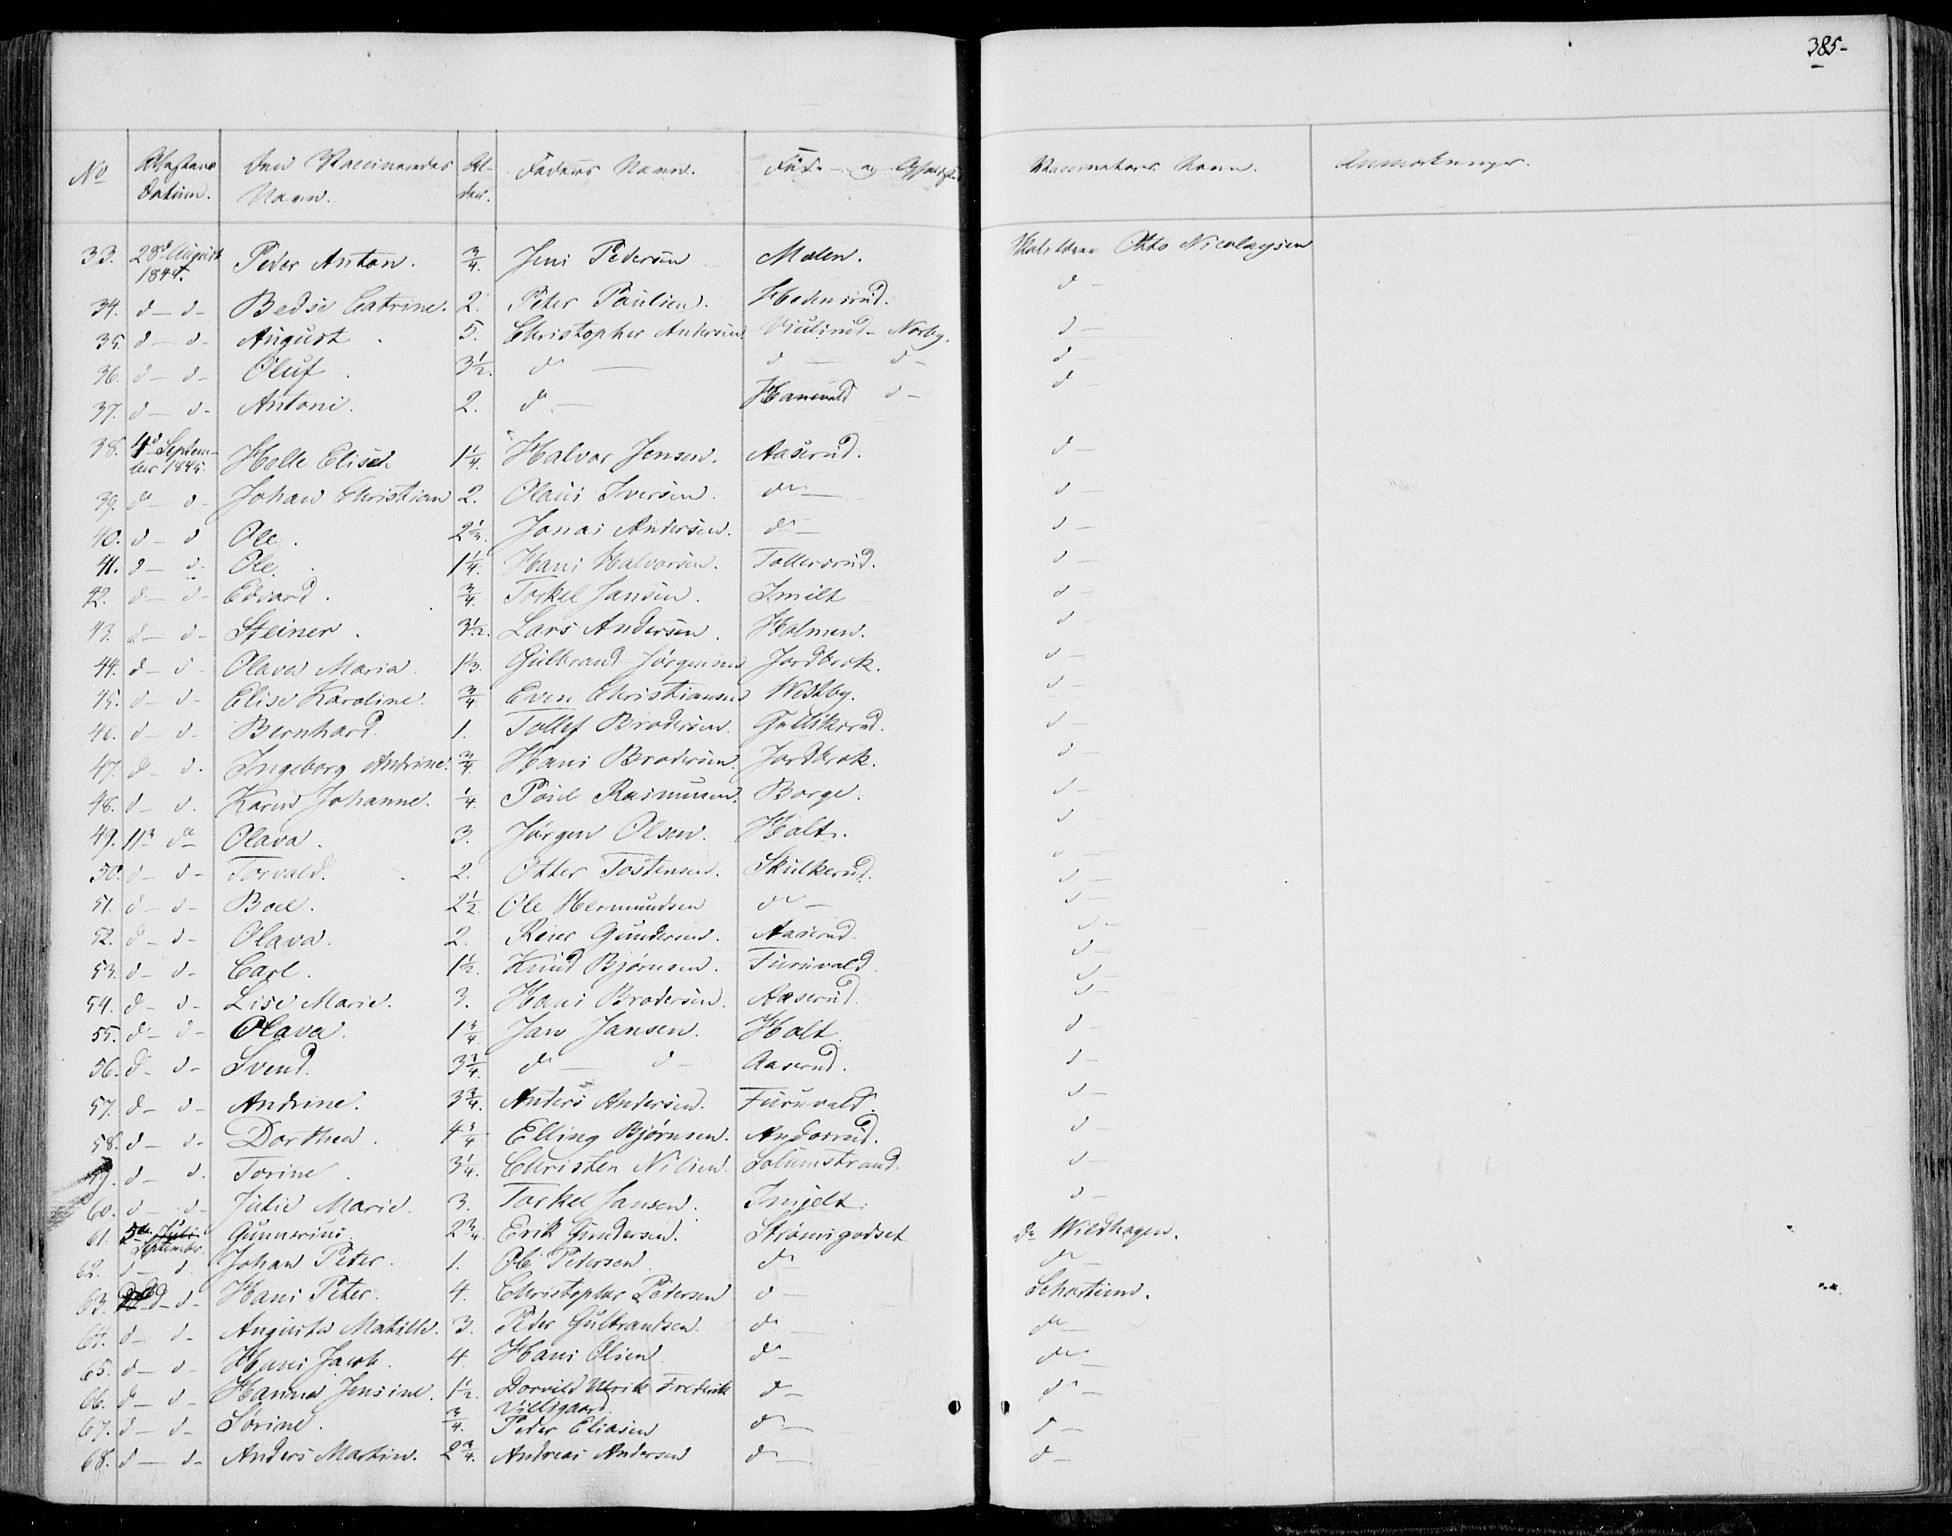 385-
No | Attestens Datum. | Den Vaccineredes Navn. | Al- der. | Faders Navn. | Føde- og Opholdst | Vaccinateurs Navn. | Anmærkninger.
33. | 28d August 1844. | Peder Anton. | 3/4. | Jens Pedersen | Molen. | Otto Nicolaysen
34. | d - d - | Bedse Catrine. | 2. | Peter Paulsen. | Hedensrud. | d -
35. | d - d - | August | 5. | Christopher Andersen | Norby. | d -
36. | d - d - | Oluf. | 3 1/2. | d - | d - d - | d -
37. | d - d - | Antoni. | 2. | d - | d - | d -
38. | 4d Septem- ber 1845. | Helle Elise. | 1 1/4. | Halvor Jensen. | Aaserud. | d -
39. | d - d - | Johan Christian | 2. | Olaus Iversen. | do - | d -
40. | d - d | Ole. | 2 1/2. | Jonas Andersen. | d - | d -
41. | d - d - | Ole. | 1 1/4. | Hans Halvorsen. | Tollersrud. | d -
42. | d - d - | Edvard. | 3/4. | Torkel Jansen. | Smilt | d -
43. | d - d - | Steiner. | 3 1/2. | Lars Andersen. | Holmen. | d -
44. | d - d - | Olava Maria | 1 1/3. | Gulbrand Jørgensen | Jordbrek. | d -
45. | d - d - | Elise Karoline. | 3/4. | Even Christiansen | Vestby. | d -
46. | d - d - | Bernhard. | 1. | Tollef Brodersen. | Gulliksrud. | d -
47. | d - d - | Ingeborg Andrine. | 3/4. | Hans Brodersen. | Jordbrek. | d -
48. | d - d. | Karen Johanne. | 1/4. | Poul Rasmussen. | Borge. | d -
49. | 11d do | Olava. | 3. | Jørgen Olsen. | Holt. | d -
50. | d - d - | Torvald. | 2. | Otter Tostensen. | Skulkerud. | d -
51. | d - d - | Boel. | 2 1/2. | Ole Hermundsen | do - | d -
52. | d - d - | Olava. | 2. | Reier Gundersen. | Aaserud. | d -
53. | d - d - | Carl. | 1 1/2. | Knud Bjørnsen. | Furuvald. | d -
54. | d - d - | Lise Marie. | 3. | Hans Brodersen. | Aaserud. | d -
55. | d - d - | Olava. | 1 3/4. | Jan Jansen. | Holt. | d -
56. | d - d - | Svend. | 3 3/4. | d - d - | Aaserud. | d -
57. | d - d - | Andrine. | 3 3/4. | Anders Andersen. | Furuvald. | d -
58. | d - d - | Dorthea. | 4 3/4 | Elling Bjørnsen. | Andorsrud. | d -
59. | d - d. | Torine. | 3 1/4. | Christen Nilsen. | Solumstrand. | d -
60. | d - d - | Julie Marie. | 3. | Torkel Jansen. | Smjelt. | d -
61. | 5te Juli September. | Gunnerius. | 2 3/4. | Erik Gundersen. | Strømsgodset | Do Wildhagen.
62. | d - d. | Johan Peter. | 1. | Ole Pedersen. | do | do
63. | d - d - | Hans Peter. | 4. | Christopher Pedersen | d - | Schartum.
64. | d - d - | Augusta Matilde. | 3. | Peder Gulbrandsen. | do | do -
65. | d - d - | Hans Jacob. | 4. | Hans Olsen. | d - | do -
66. | d - d - | Hanna Jensine. | 1 1/2. | Ulrik Frederik | d - | do -
67. | d - d - | Sørine. | 3/4. | Peder Eliasen | d - | d -
68. | d - d - | Anders Martin. | 2 3/4. | Andreas Andersen | d - | d -